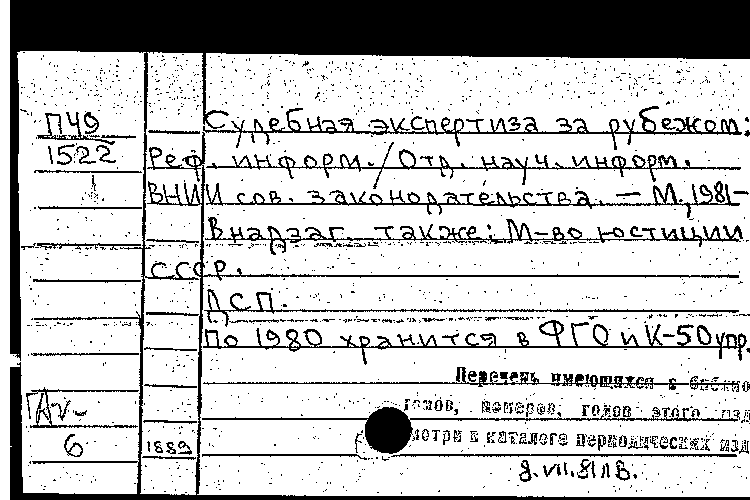 П49
1522
Судебная экспертиза за рубежом:
Реф. информ. / Отд. науч. информ.
ВНИИ сов. законодательства. — М., 1981—
В надзаг. также: М-во юстиции
СССР.
ДСП.
По 1980 хранится в ФГО и К-50 упр.
Перечень имеющихся в библио
томов, номеров, годов этого изд
мотри в каталоге периодических изд
6
1889
8.VII.81 ЛВ.